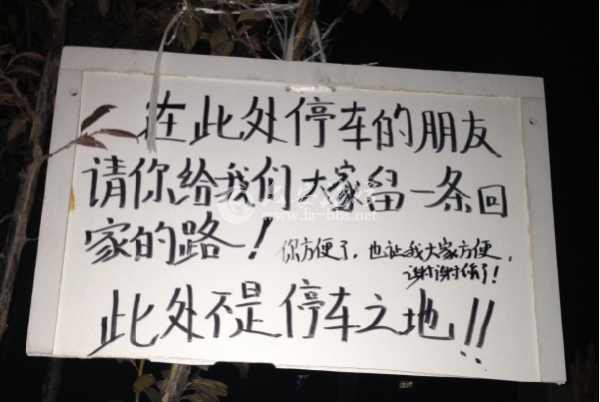 在此处停车的朋友
请你给我们大家留一条回
家的路！
你方便了，也让我大家方便，
谢谢谢你了！
此处不是停车之地！！
www.la-bbs.net